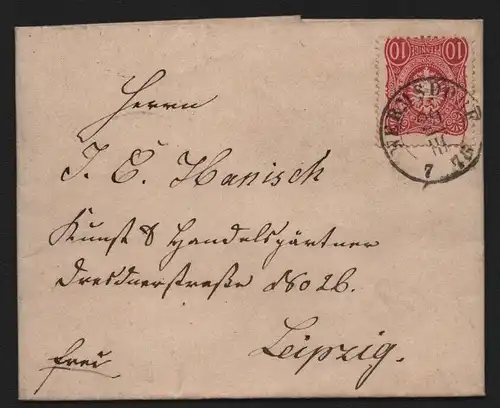 10 PFENNIGE 10
Herrn
J. E. Hanisch
Kunst & Handelsgärtner
Dresdnerstraße No 26.
Leipzig.
frei